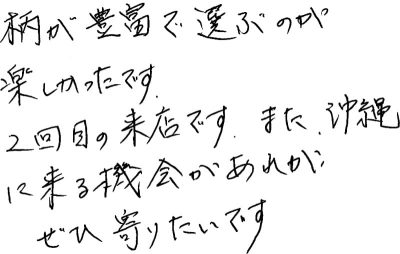 柄が豊富で選ぶのが
楽しかったです.
2回目の来店です. また、沖縄
に来る機会があれば
ぜひ寄りたいです